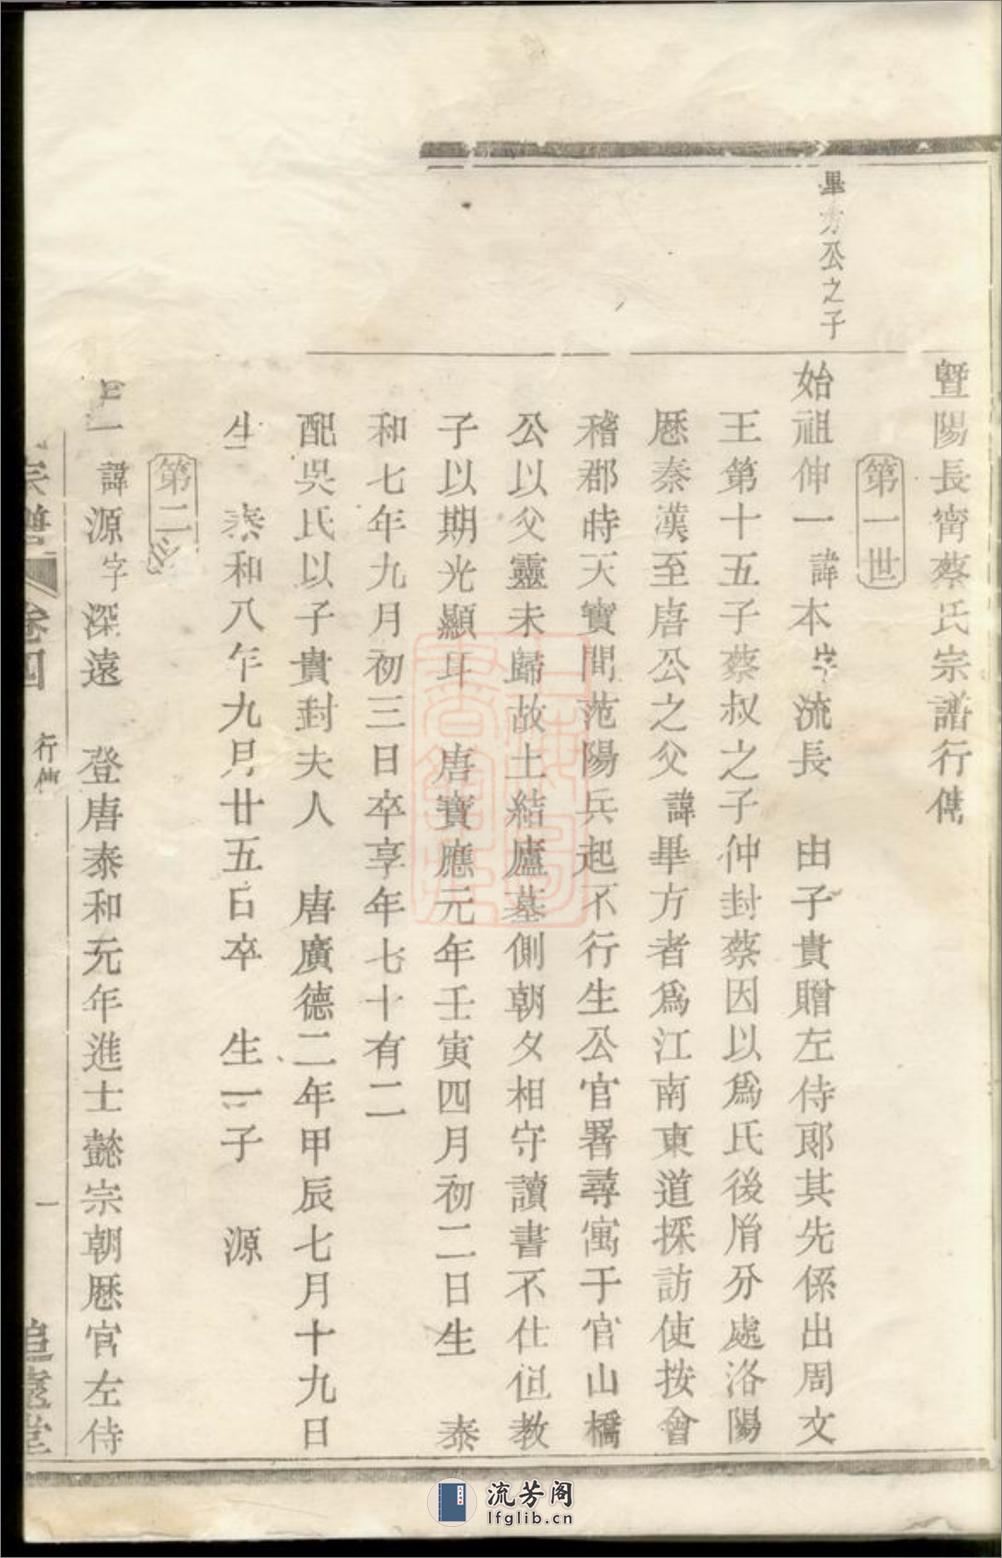 暨陽長甯蔡氏宗譜行傳
第一世
畢方公之子
始祖伸一諱本字流長 由子貴贈左侍郎其先係出周文
王第十五子蔡叔之子仲封蔡因以爲氏後胤分處洛陽
厯秦漢至唐公之父諱畢方者爲江南東道採訪使按會
稽郡時天寶間范陽兵起不行生公官署尋寓于官山橋
公以父靈未歸故土結廬墓側朝夕相守讀書不仕但教
子以期光顯耳 唐寶應元年壬寅四月初二日生 泰
和七年九月初三日卒享年七十有二
配吳氏以子貴封夫人 唐廣德二年甲辰七月十九日
生 泰和八年九月廿五日卒 生一子 源
第二
一諱源字深遠 登唐泰和元年進士懿宗朝厯官左侍
宗譜 卷四 行傳 一 追遠堂
流芳阁
lfglib.cn